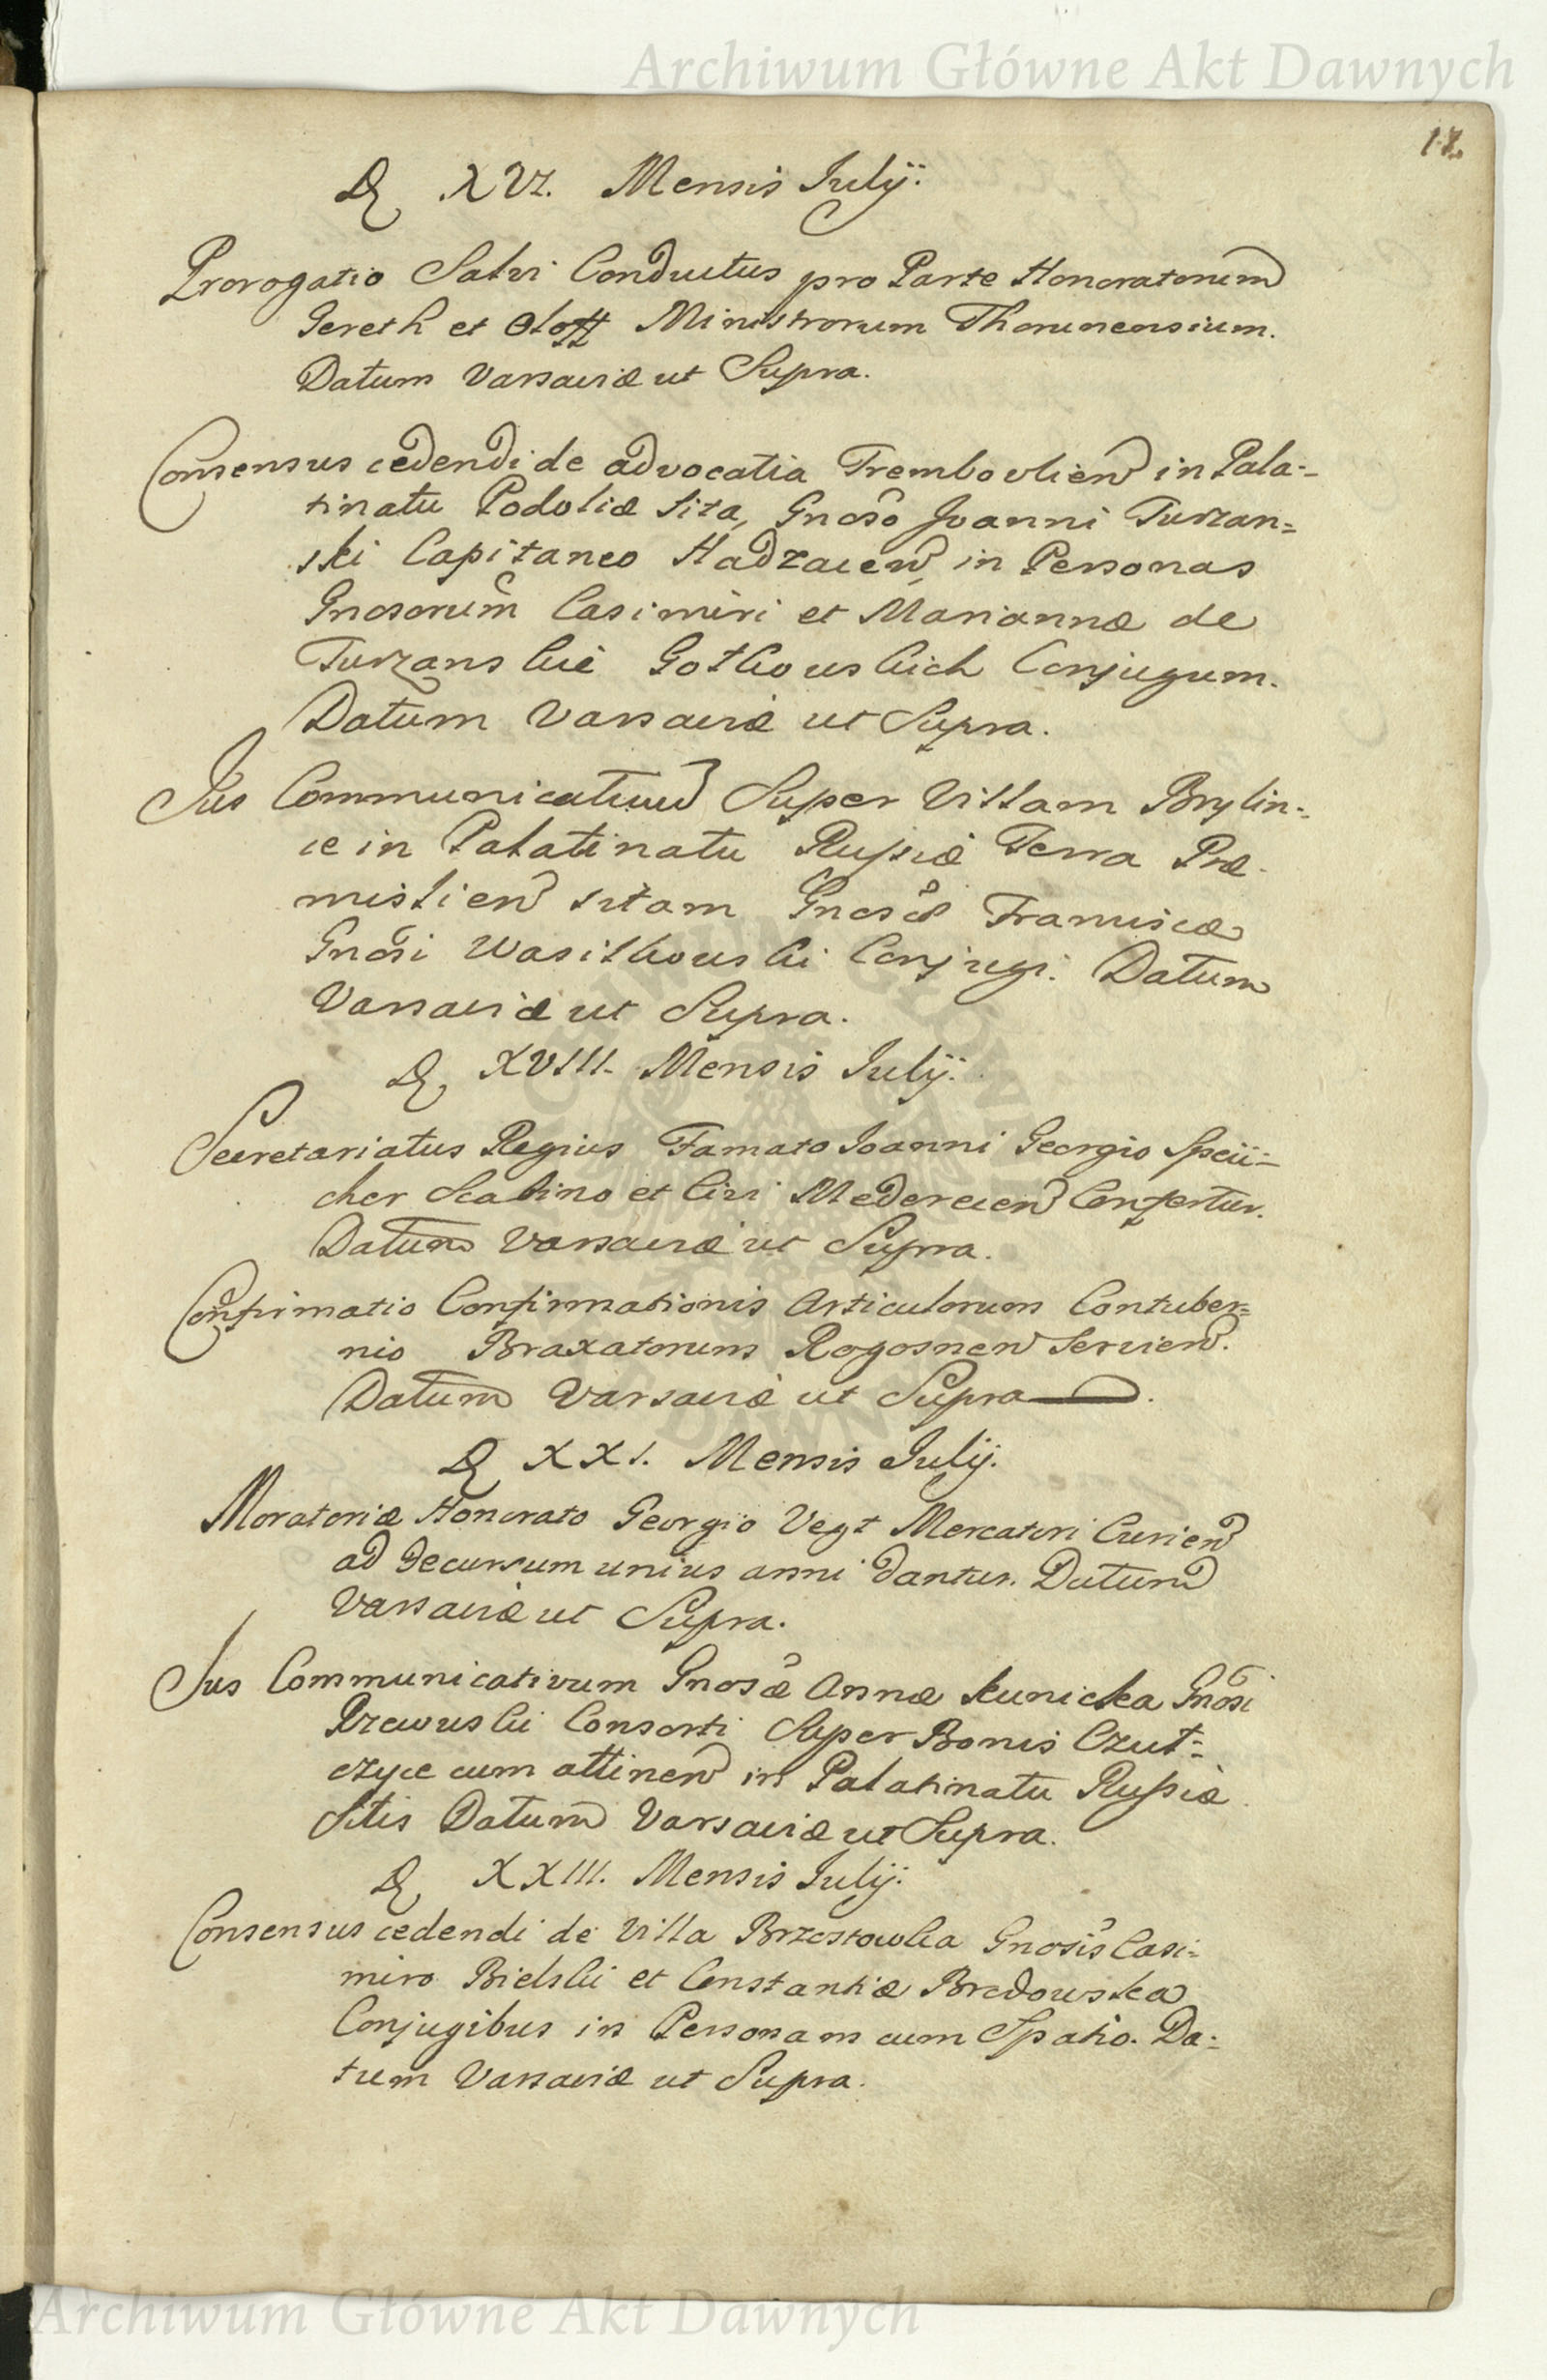 Archiwum Główne Akt Dawnych
D. XVI. Mensis Julij.
Prorogatio Salvi Conductus pro Parte Honoratorum
Gereth et Oloff Ministrorum Thorunensium.
Datum Varsaviæ ut Supra.
Consensus cedendi de advocatia Trembovlien in Pala-
tinatu Podoliæ sita, Gnoso Joanni Turzan=
ski Capitaneo Hadzacen, in Personas
Gnosorum Casimiri et Mariannæ de
Turzanskie Gotkowskich Conjugum.
Datum Varsaviæ ut Supra.
Jus Communicativum Super Villam Brylin=
ce in Palatinatu Russiæ Terra Præ-
mislien sitam Gnosæ Franciscæ
Gnosi Wasilkowski Conjugi. Datum
Varsaviæ ut Supra.
D. XVIII. Mensis Julij.
Secretariatus Regius Famato Joanni Georgio
cher Scabino et Civi Mederecen Confertur.
Datum Varsaviæ ut Supra.
Confirmatio Confirmationis Articulorum Contuber=
nio Braxatorum Rogosnen Servien.
Datum Varsaviæ ut Supra.
D. XXI. Mensis Julij.
Moratoriæ Honorato Georgio Vegt Mercatori Curien
ad decursum unius anni dantur. Datum
Varsaviæ ut Supra.
Jus Communicativum Gnosæ Annæ Kunicka Gnosi
Consorti Super Bonis Czut=
czyce cum attinen in Palatinatu Russiæ
Sitis Datum Varsaviæ ut Supra.
D. XXIII. Mensis Julij.
Consensus cedendi de Villa Brzostowka Gnosis Casi=
miro Bielski et Constantiæ Bredowska
Conjugibus in Personam cum Spatio. Da=
tum Varsaviæ ut Supra.
Archiwum Główne Akt Dawnych